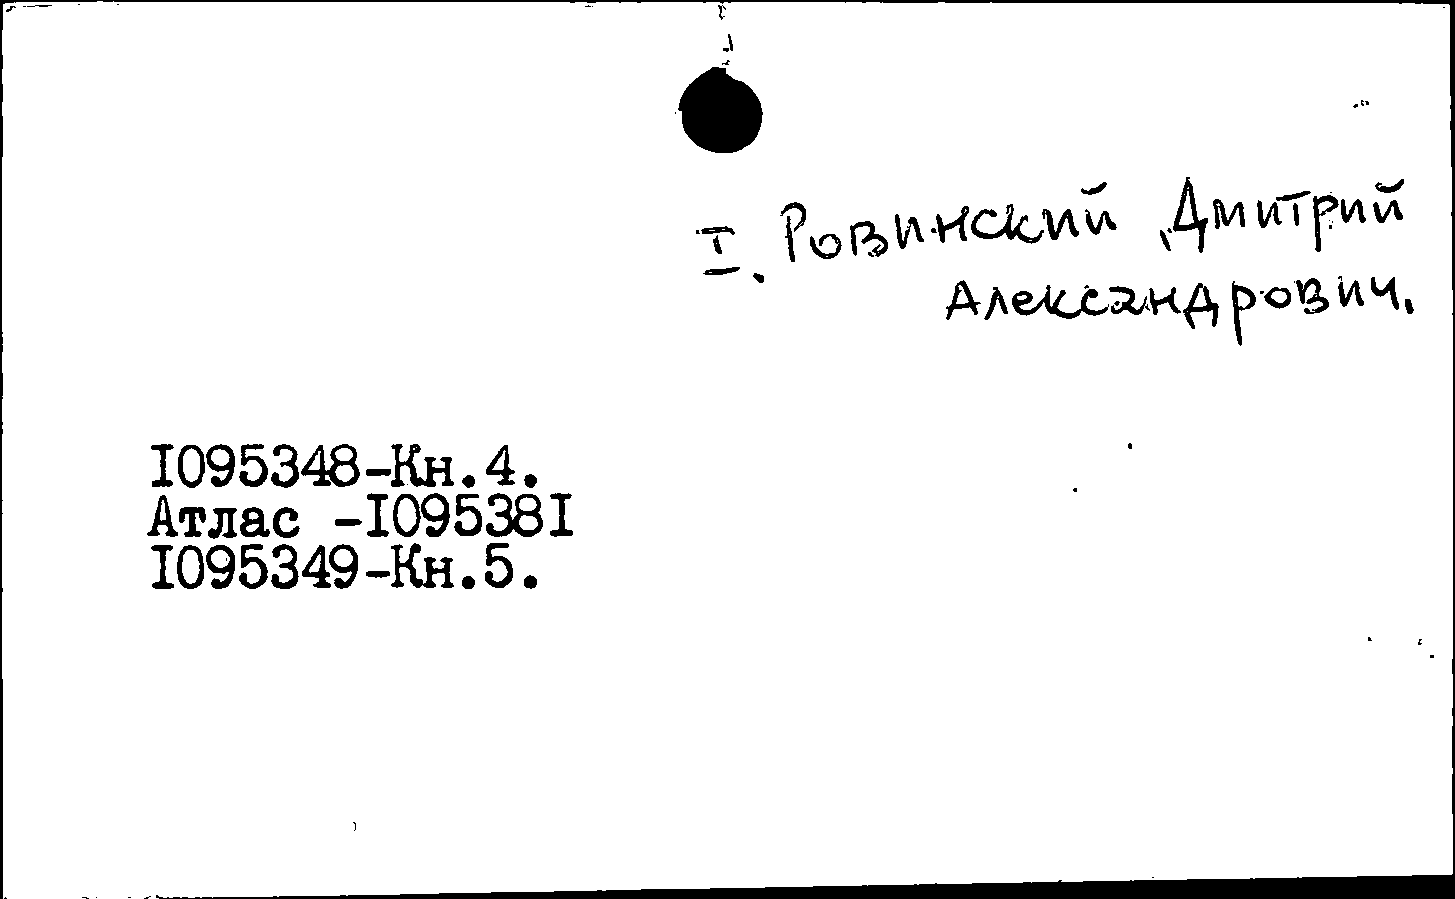 I. Ровинский, Дмитрий
Александрович.
I095348-Кн.4.
Атлас -I09538I
I095349-Кн.5.